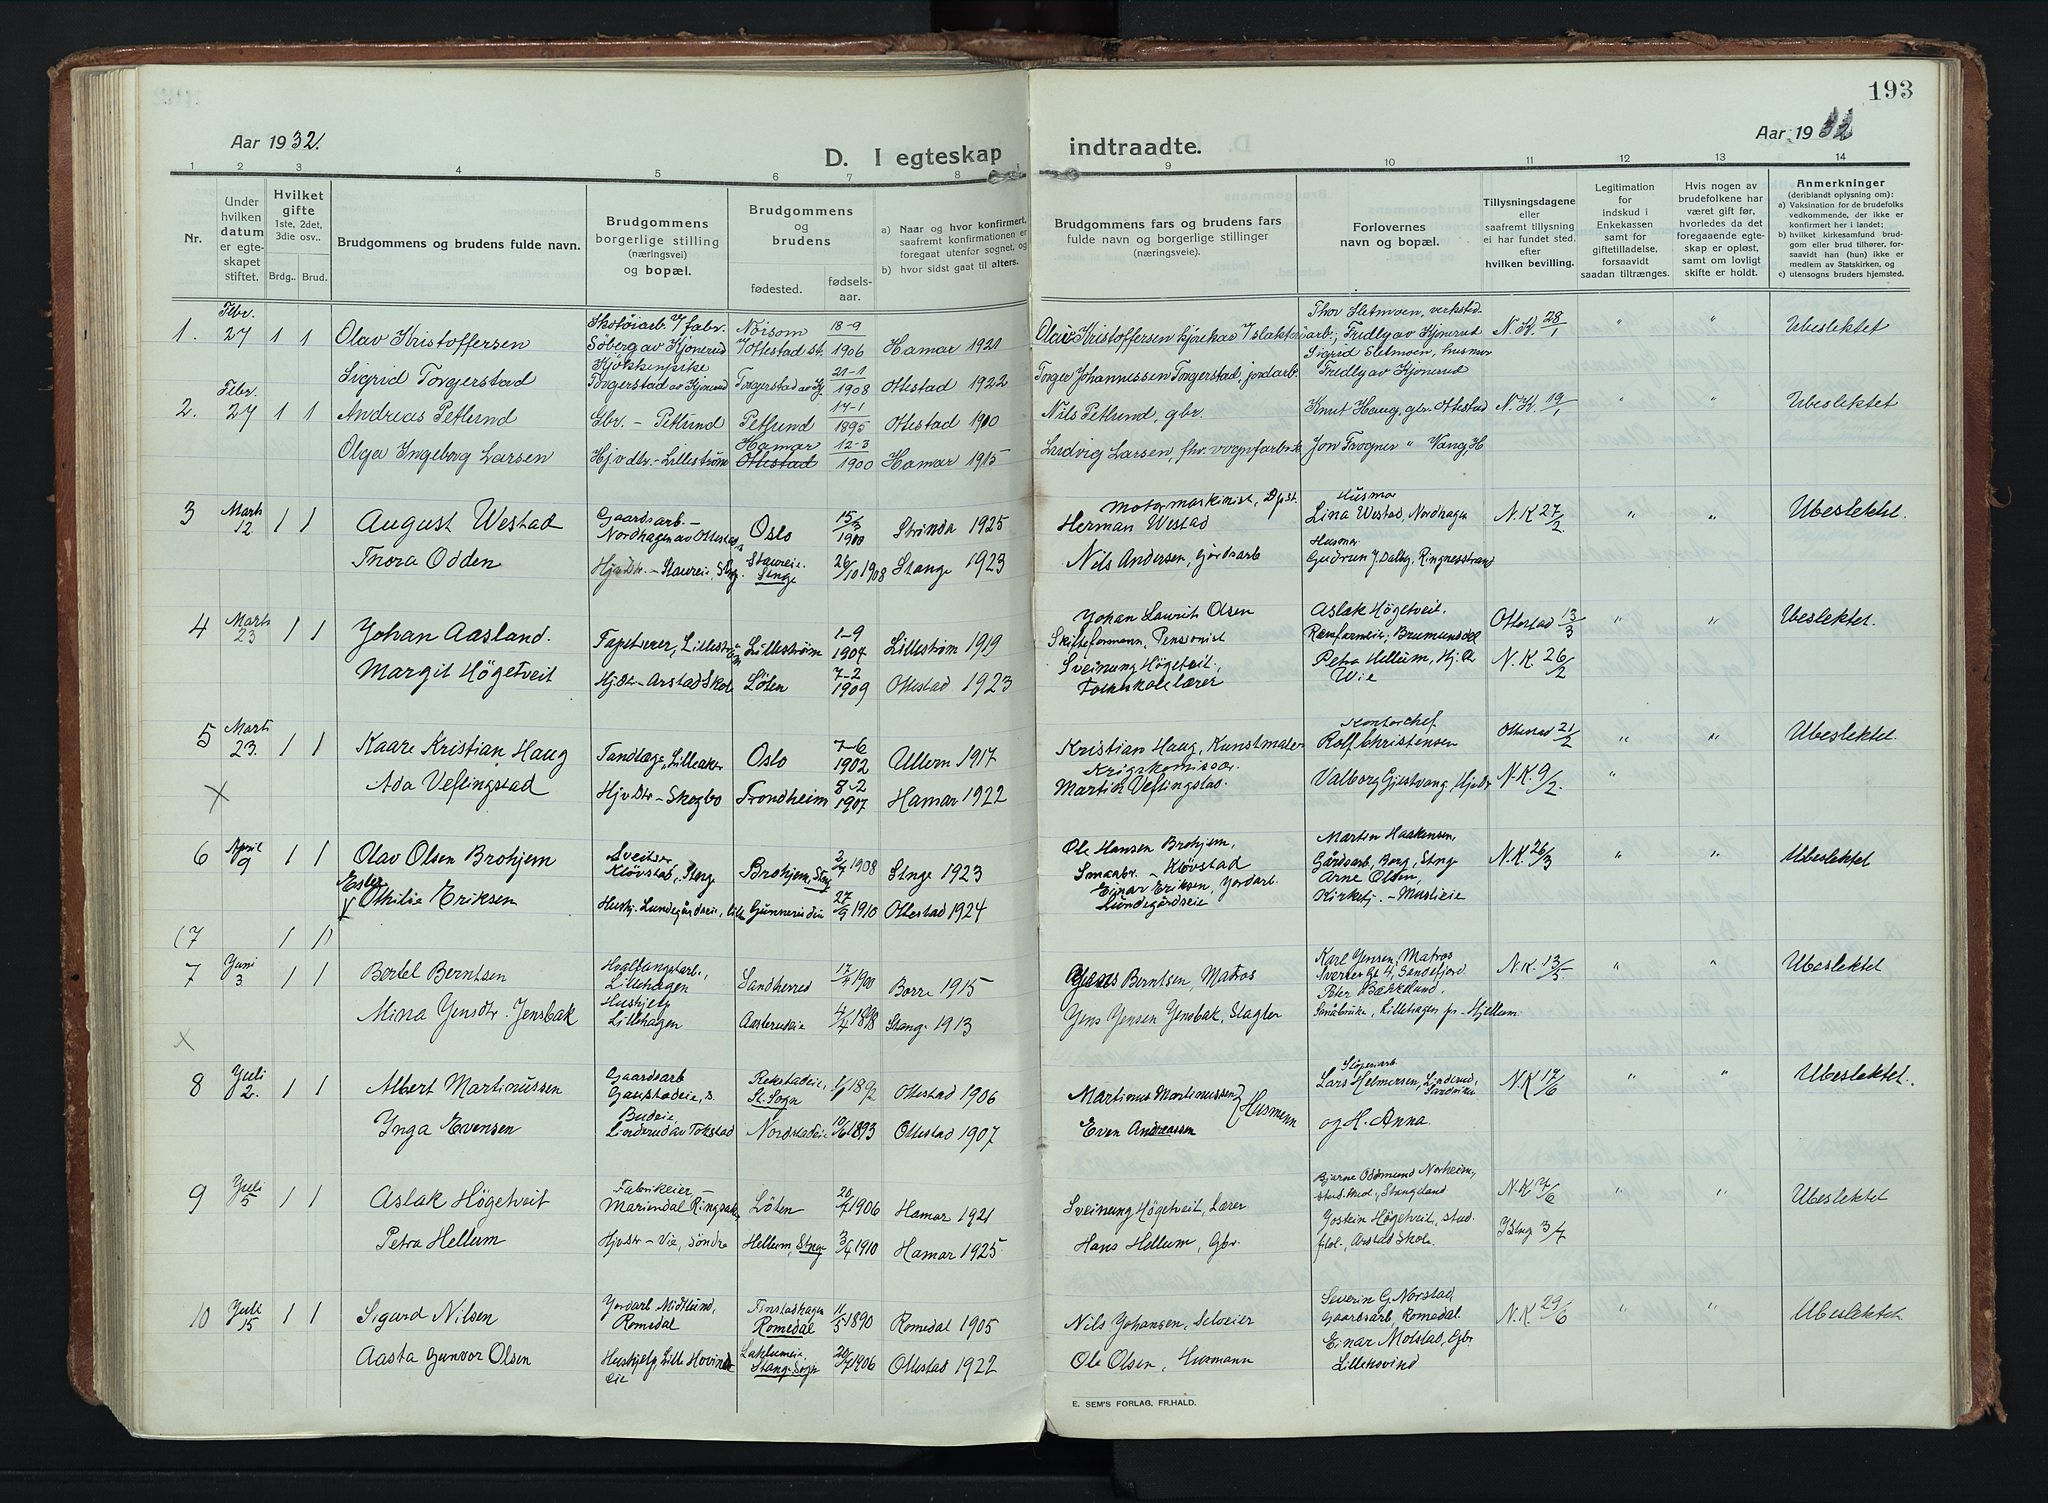 193
Aar 1932.
D. I egteskap
indtraadte.
Aar 1932
1 2 3 4 5 6 7 8 9 10 11 12 13 14
Nr.
Under hvilken datum er egteskapet stiftet.
Hvilket gifte 1ste, 2det, 3die osv..
Brdg.. Brud.
Brudgommens og brudens fulde navn.
Brudgommens borgerlige stilling (næringsvei) og bopæl.
Brudgommens og brudens
fødested. fødselsaar.
a) Naar og hvor konfirmert, saafremt konfirmationen er foregaat utenfor sognet, og
b) hvor sidst gaat til alters.
Brudgommens fars og brudens fars fulde navn og borgerlige stillinger (næringsveie).
Forlovernes navn og bopæl.
Tillysningsdagene eller saafremt tillysning ei har fundet sted. efter hvilken bevilling.
Legitimation for indskud i Enkekassen samt for giftetilladelse, forsaavidt saadan tiltrænges.
Hvis nogen av brudefolkene har været gift før, hvorledes da det foregaaende egteskap er opløst, samt om lovligt skifte er holdt.
Anmerkninger (deriblandt oplysning om):
a) Vaksination for de brudefolks vedkommende, der ikke er konfirmert her i landet;
b) hvilket kirkesamfund brudgom eller brud tilhører, forsaavidt han (hun) ikke er medlem av Statskirken, og
c) utensogns bruders hjemsted.
1. Febr. 27 1 1 Olav Kristoffersen Skotøiarb. v/ fabr. Söberg av Kjonerud Nöisom v/Ottestad st. 18-9 1906 Hamar 1921 Olav Kristoffersen kjørekar v/ slakteri Thor Sletmoen, verksted arb., Fredly av Kjonerud N.K. 28/1 " " Ubeslektet
Sigrid Torgerstad Kjökkenpike Torgerstad av Kjonerud Torgerstad av Kj. 21-1 1908 Ottestad 1922 Torger Johannessen Torgerstad, jordarb. Sigrid Sletmoen, husmor Fredly av Kjonerud
2. Febr. 27 1 1 Andreas Petlund Gbr. - Petlund Petlund 17-1 1895 Ottestad 1910 Nils Petlund, gbr. Knut Haug, gbr. Ottestad N.K. 19/1 " " Ubeslektet
Olga Ingeborg Larsen Hj.v.dtr. - Lillestrøm Hamar Ottestad 12-3 1900 Hamar 1915 Ludvig Larsen, fhv. vognfabrik Jon Frogner " Vang, H.
3 Marts 12. 1 1 August Westad Gaardsarb. - Nordhagen av Ottestad Oslo 15/3 1900 Strinda 1925 motormaskinist, Herman Westad Husmor Lina Westad, Nordhagen N.K 27/2 " " Ubeslektet.
Thora Odden Hj.v.Dtr. - Staureie, Stg. Staureie Stnge 26/10 1908 Stange 1923 Nils Andersen, Gårdsarb Husmor Gudrun J. Dalby, Ringnesstrand
4 Marts 23 1 1 Johan Aasland. Tapetserer, Lillestrøm Lillestrøm 1-9 1904 Lillestrøm 1919 Johan Laurits Olsen Skifteformann, Pensionist Aslak Högetveit. Revefarmeier, Brumunddal Ottestad 13/3 " " Ubeslektet.
Margit Högetveit Hj.Dtr - Arstad Skole Löten 7-2 1909 Ottestad 1923 Sveinung Högetveit, Folkeskolelærer Petra Hellum, Hj.Dtr Wie N.K. 26/2
5 Marts 23. 1 1 Kaare Kristian Haug Tandlæge, Lilleaker Oslo 7-6 1902 Ullern 1917 Kristian Haug, Kunstmaler Kontorchef. Rolf Christensen Ottestad 21/2 " " Ubeslektet
x Ada Veflingstad Hjv.Dtr - Skogbo Trondheim 8-2 1907 Hamar 1922 Krigskomissær. Martin Veflingstad. Valborg Gjestvang, Hjv.Dtr N.K. 9/2. "
6 April 9 1 1 Olav Olsen Brohjem Sveitser Klövstad, Stnge Brohjem, Stng 2/4 1908 Stnge 1923 Ole Hansen Brohjem, Smaabr. - Klövstad Martin Haakensen Gårdsarb, Berg, Stnge N.K. 26/3 " " Ubeslektet
Ester Othilie Eriksen Hushj. Lundegårdseie, Gunnerudeie 27/9 1910 Ottestad 1924 Einar Eriksen, Jordarb. Lundegårdseie Arne Olsen, Kirketj. - Muslieie
(7 1 1)
7 Juni 3 1 1 Bertel Berntsen Hvalfangstarb., Lillehagen Sandherred 17/4 1900 Borre 1915 Hans Berntsen, Matros Karl Jensen, Matros Sverresgt 4, Sandefjord N.K. 13/5. " " Ubeslektet
x Mina Jensdtr. Jensbak Hushjelp Lillehagen Aasterudeie 4/4 1898 Stange 1913 Jens Jensen Jensbak, Slagter Peter Bækkelund. Småbruker, Lillehagen pr. Hjellum
8 Juli 2. 1 1 Albert Martinussen Gaardsarb Gaustadeie, S. Rekstadeie, St. Sogn 1892 Ottestad 1906 Martinus Martinussen } Husmenn Skogsarb. Lars Helmersen, Linderud, Sandviken N.K 17/6 " " Ubeslektet.
Inga Evensen Budeie Linderud av Tokstad Nordstadeie 10/6 1893 Ottestad 1907 Even Andreassen og H. Anna.
9 Juli 5 1 1 Aslak Högetveit Fabrikeier - Mariendal Ringsaker Löten 20/7 1906 Hamar 1921 Sveinung Högetveit, Lærer Bjarne Oddmund Norheim, stud.med., Stangeland N.K 7/6 " " Ubeslektet
Petra Hellum Hjv.dtr - Vie, Söndre Hellum, Stnge 3/4 1910 Hamar 1925. Hans Hellum, Gbr. Jostein Högetveit, stud. filol., Arstad Skole. I Stng 3/7
10 Juli 15 1 1 Sigurd Nilsen Jordarb Midtlund, Romedal Finstadhagen Romedal 11/5 1890 Romedal 1905 Nils Johansen, Selveier Severin G. Norstad, Gaardsarb, Romedal. N.K 29/6 " " Ubeslektet
Aasta Gunvor Olsen Hushjelp, Lille Hovindeie Laklumeie Stang. Sogn 20/7 1906 Ottestad 1922 Ole Olsen, Husmann Einar Molstad, Gbr Lillehovind
E. SEM'S FORLAG, FR.HALD.